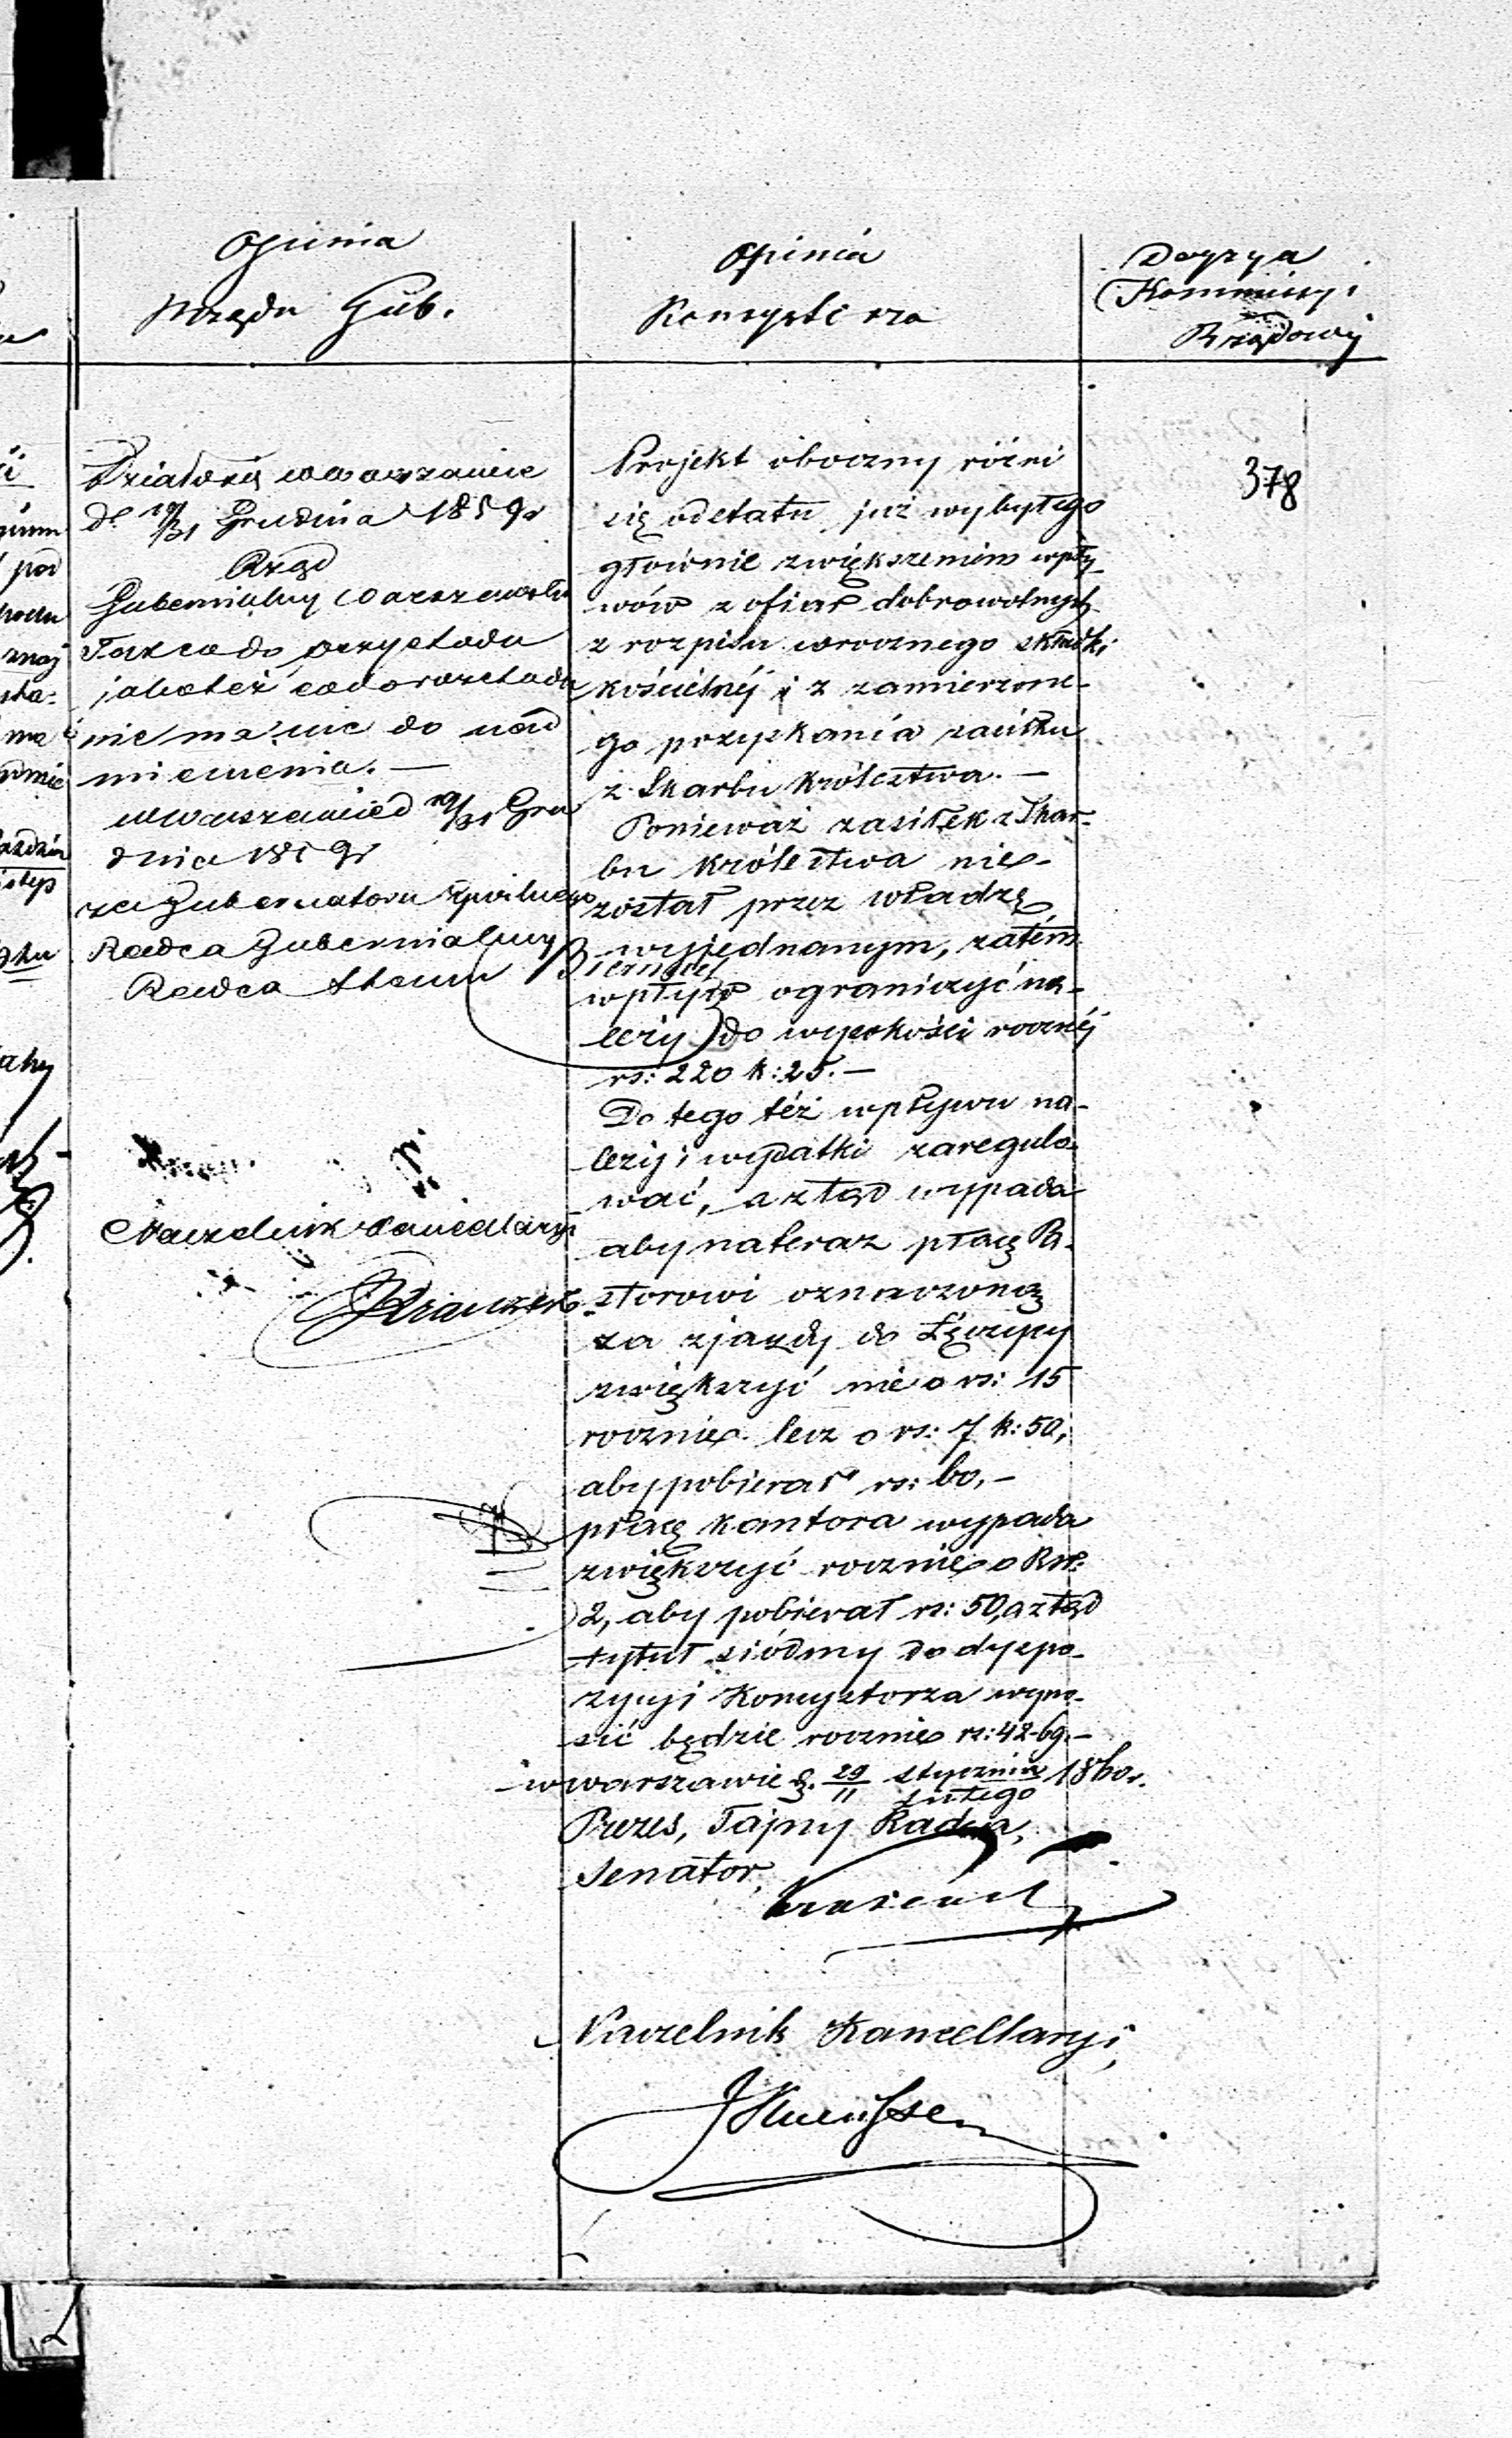 Opinia
Rządu Gub.
Opinia
Konsystorza
Decyzya
Kommissyi
Rządowéj
378
Działo się w Warszawie
d. 19/31 Grudnia 1859 r
Rząd
Gubernialny Warszawski
Tak co do przychodu
jako też co do rozchodu
nie ma nic do nad
mienienia. —
w Warszawie d 19/31 Gru
dnia 1859 r
za Gubernatora Cywilnego
Radca Gubernialny
Radca Stanu
Naczelnik Kancellaryi
Projekt oboczny różni
się od etatu już wybyłego
głównie zwiększeniem wpły-
wów z ofiar dobrowolnych
z rozpisu corocznego składki
kościelnéj i z zamierzone-
go pozyskania zasiłku
z Skarbu Królestwa. —
Ponieważ zasiłek z Skar-
bu Królestwa nie-
został przez władzę
wyjednanym, zatém
wpływ ograniczyć na-
leży do wysokości rocznéj
rs: 220 k: 25. —
Do tego téż wpływu na-
leży i wydatki zaregulo-
wać, a ztąd wypada
aby na teraz płacę Pa-
storowi oznaczoną
za zjazdy do Łęczycy
zwiększyć nie o rs: 15
rocznie lecz o rs: 7 k: 50,
aby pobierał rs: 60, —
płacę kantora wypada
zwiększyć rocznie o Rsr:
2, aby pobierał rs: 50, a ztąd
tytuł siódmy do dyspo-
zycyi Konsystorza wyno-
sić będzie rocznie rs: 42-69. —
w Warszawie d. 29/11 Stycznia/Lutego 1860 r.
Prezes, Tajny Radca,
Senator,
Naczelnik Kancellaryi,